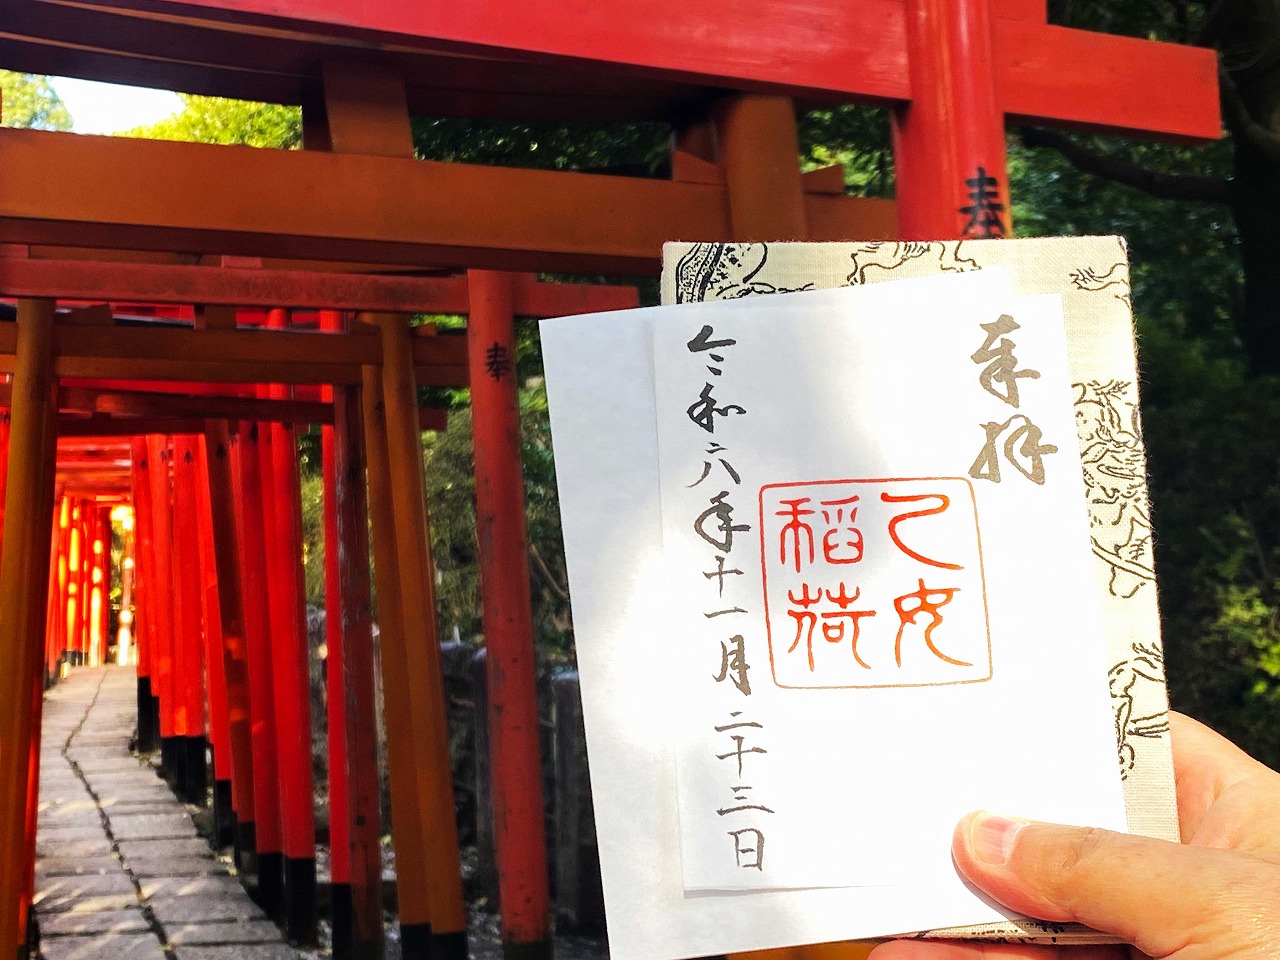 奉
奉
奉拝
乙女
稲荷
令和六年十一月二十三日